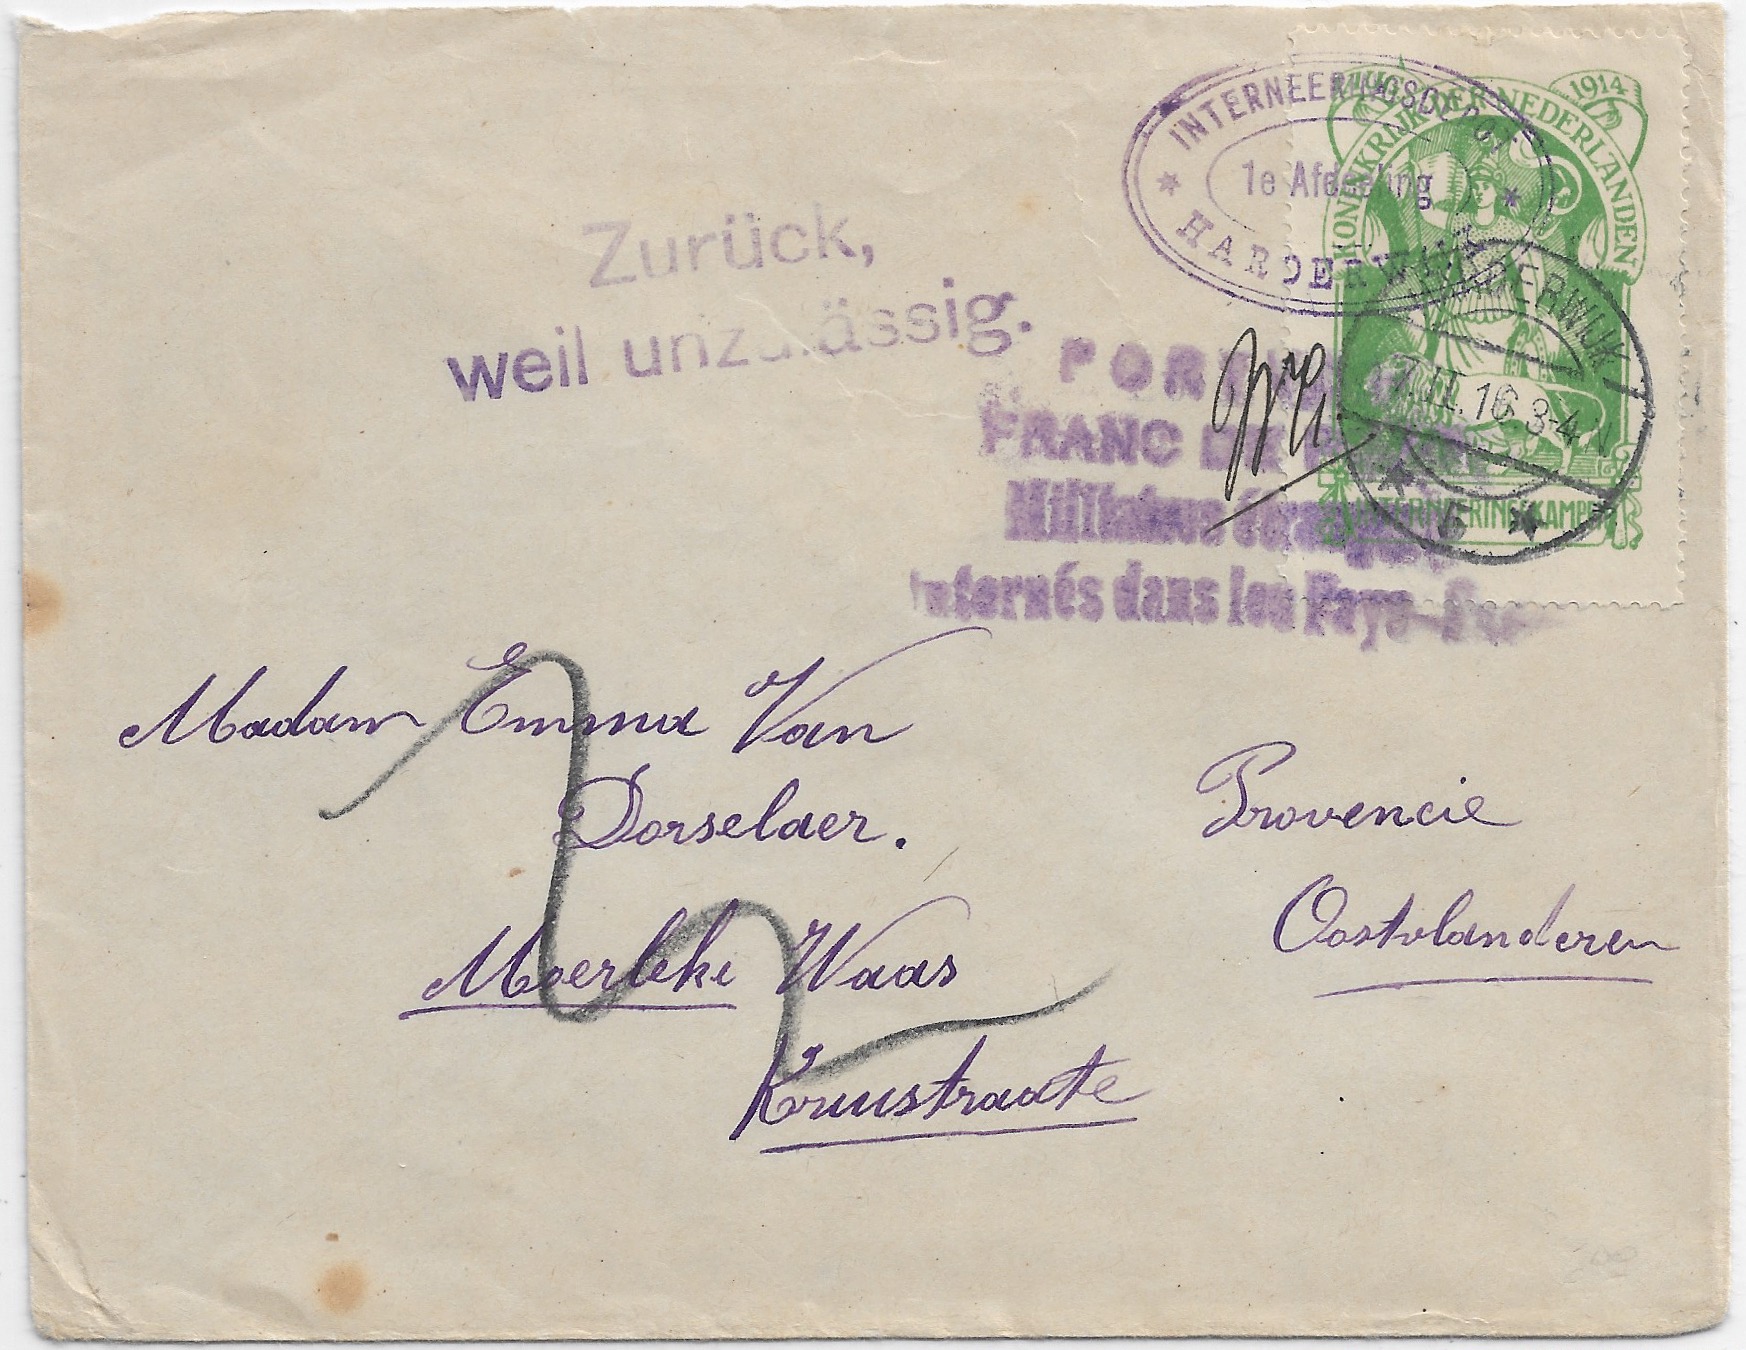 1914
KONINKRIJK DER NEDERLANDEN
INTERNEERINGSDEPOT
1e Afdeeling
HARDERWIJK
Zurück,
weil unzulässig.
HARDERWIJK
7.II.16. 3-4 N
5
PORT
FRANC DE PORT
Militaires étrangers
Internés dans les Pays-Bas
INTERNEERINGSKAMPEN
Madam Emma Van
Dorselaer.
Provencie
Moerbeke Waas
Oostvlanderen
Kruustraate